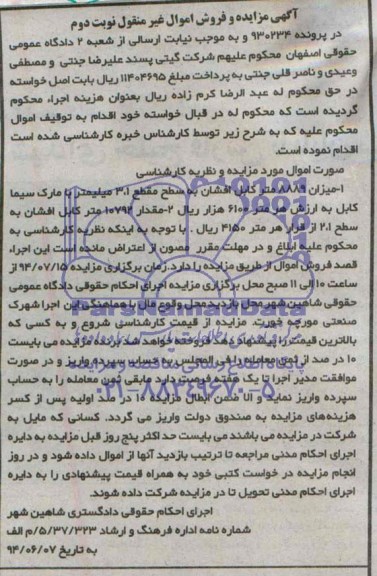 آگهی مزایده و فروش اموال غیر منقول نوبت دوم
در پرونده ۹۳۰۲۳۴ و به موجب نیابت ارسالی از شعبه ۲ دادگاه عمومی
حقوقی اصفهان محکوم علیهم شرکت گیتی پسند علیرضا جنتی و مصطفی
وعیدی و ناصر قلی جنتی به پرداخت مبلغ ۱۱۴۰۴۶۹۵ ریال بابت اصل خواسته
در حق محکوم له عبد الرضا کرم زاده ریال بعنوان هزینه اجرا، محکوم
گردیده است که محکوم له در قبال خواسته خود اقدام به توقیف اموال
محکوم علیه که به شرح زیر توسط کارشناس خبره کارشناسی شده است
اقدام نموده است.
صورت اموال مورد مزایده و نظریه کارشناسی
۱-میزان ۸۸۸۹ متر کابل افشان به سطح مقطع ۳.۱ میلیمتر با مارک سیما
کابل به ارزش هر متر ۶۱۰۰ هزار ریال ۲-مقدار ۱۰۷۹۲ متر کابل افشان به
سطح ۲.۱ از قرار هر متر ۴۱۵۰ ریال . با توجه به اینکه نظریه کارشناسی به
محکوم علیه ابلاغ و در مهلت مقرر مصون از اعتراض مانده است این اجرا،
قصد فروش اموال از طریق مزایده را دارد.زمان برگزاری مزایده ۹۴/۰۷/۱۵ از
ساعت ۱۰ الی ۱۱ صبح محل برگزاری مزایده اجرای احکام حقوقی دادگاه عمومی
حقوقی شاهین شهر محل بازدید محل وقوع مال با هماهنگی این اجرا شهرک
صنعتی مورچه خورت. مزایده از قیمت کارشناسی شروع و به کسی که
بالاترین قیمت را پیشنهاد دهد فروخته خواهد شد برنده مزایده می بایست
۱۰ در صد از ثمن معامله را فی المجلس به حساب سپرده واریز و در صورت
موافقت مدیر اجرا تا یک هفته فرصت دارد مابقی ثمن معامله را به حساب
سپرده واریز نماید و الا ضمن ابطال مزایده ۱۰ در صد اولیه پس از کسر
هزینه‌های مزایده به صندوق دولت واریز می گردد. کسانی که مایل به
شرکت در مزایده می باشند می بایست حد اکثر پنج روز قبل مزایده به دایره
اجرای احکام مدنی مراجعه تا ترتیب بازدید آنها از اموال داده شود و در روز
انجام مزایده در خواست کتبی خود به همراه قیمت پیشنهادی را به دایره
اجرای احکام مدنی تحویل تا در مزایده شرکت داده شوند.
اجرای احکام حقوقی دادگستری شاهین شهر
شماره نامه اداره فرهنگ و ارشاد ۵/۳۷/۳۲۳/م الف
به تاریخ ۹۴/۰۶/۰۷
ParsNamadData
پایگاه اطلاع رسانی مناقصه و مزایده
۰۲۱-۸۸۳۴۹۶۷۰-۵